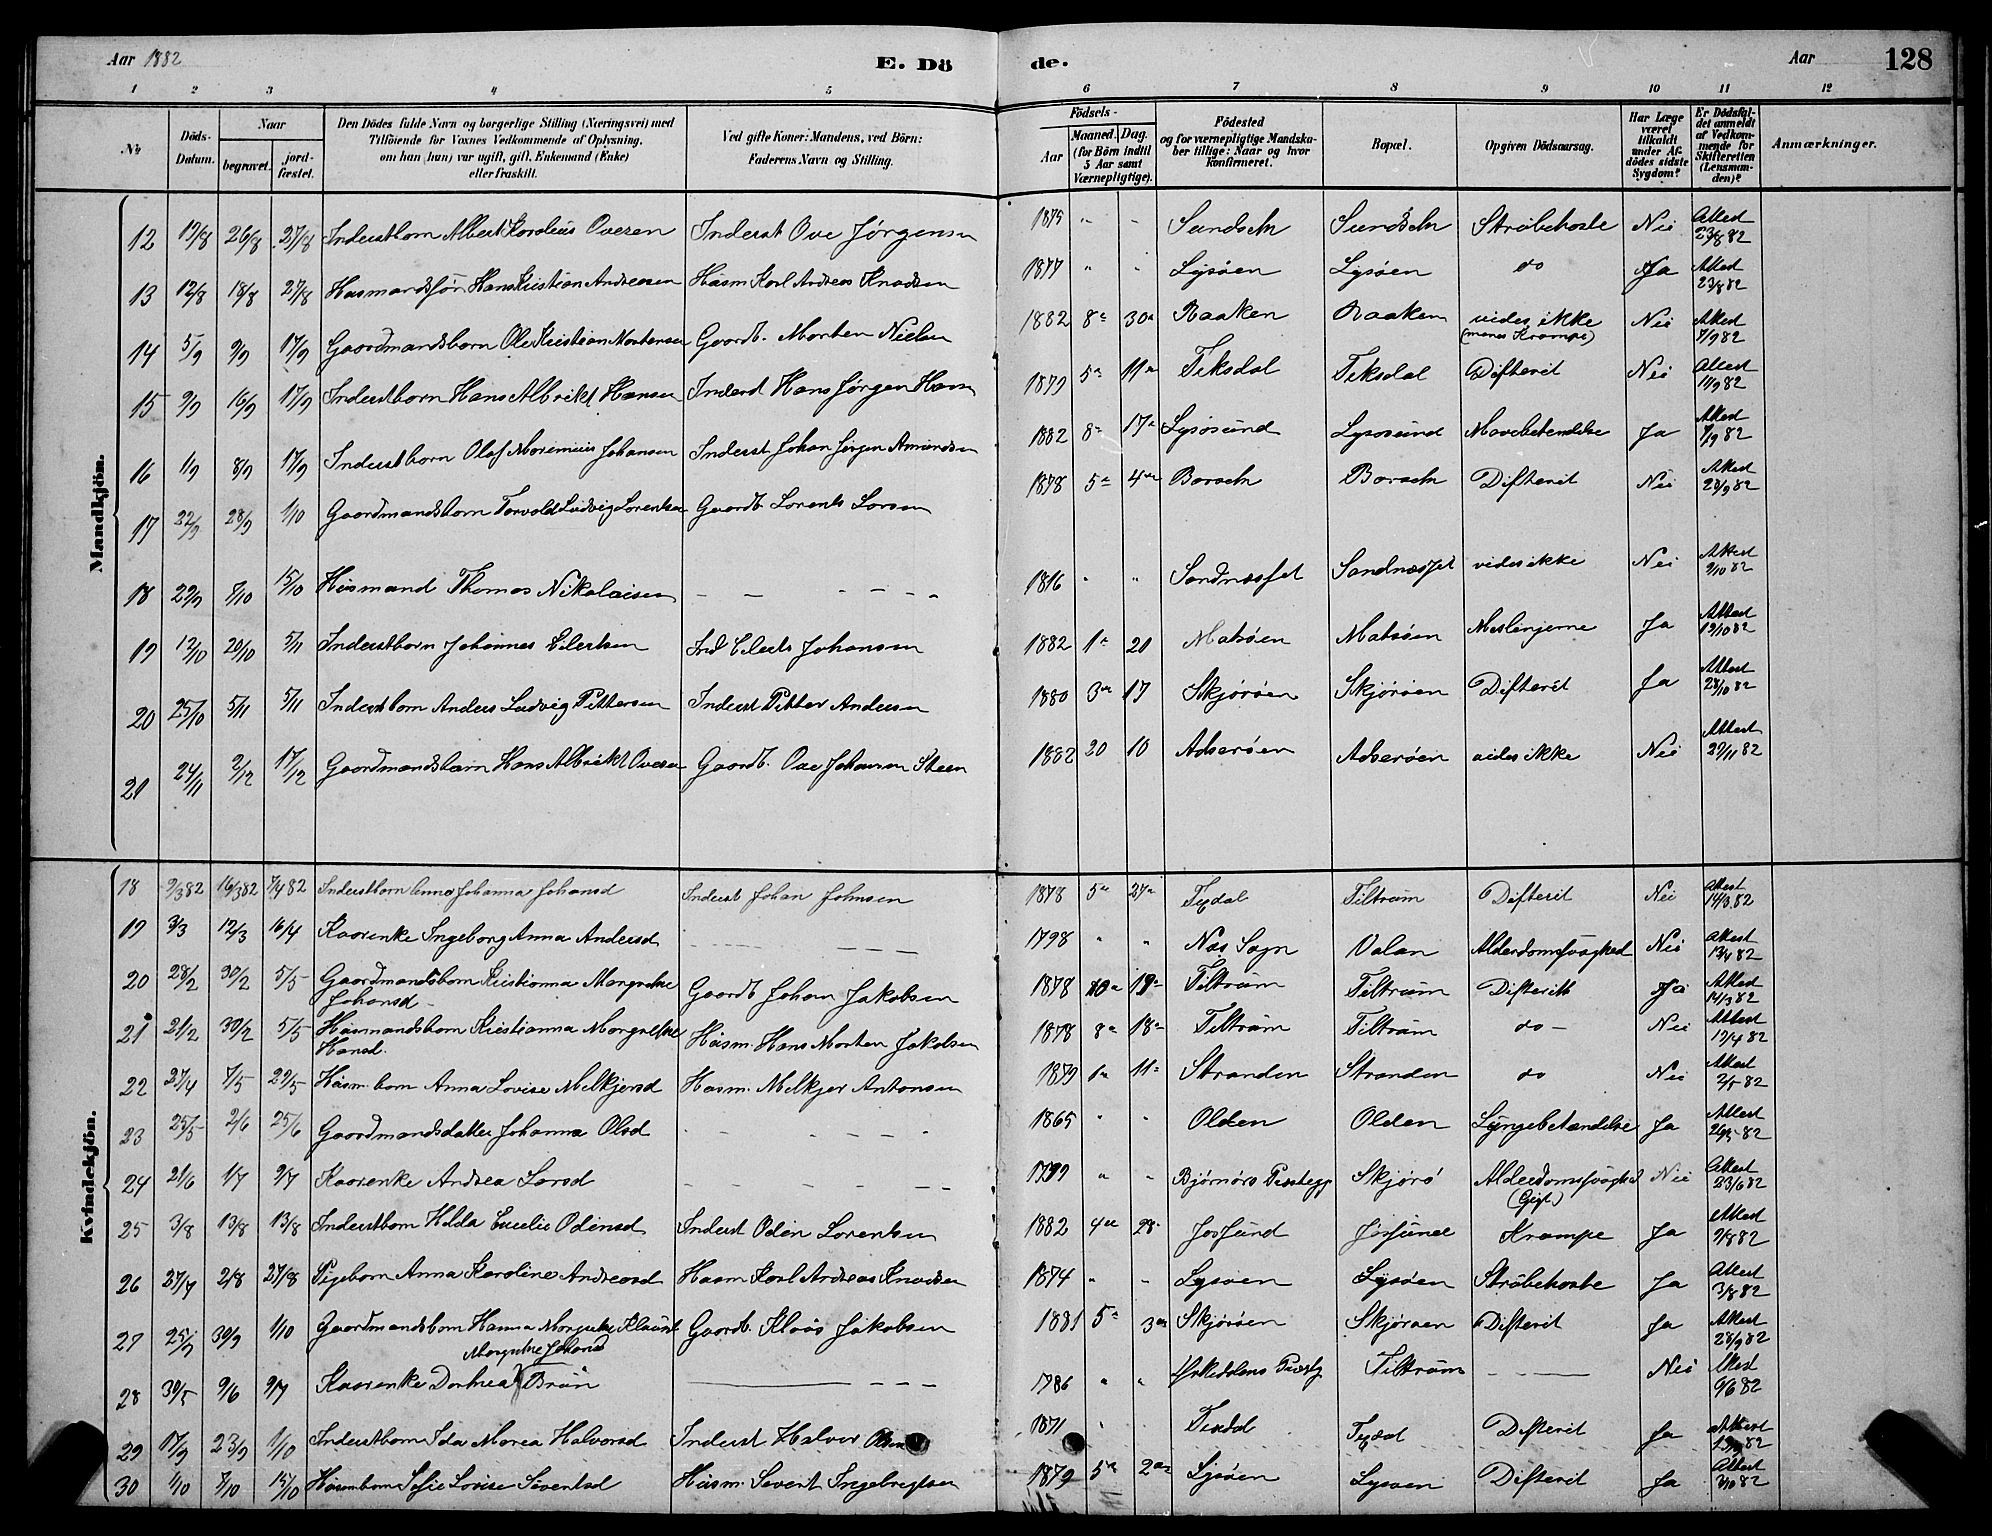 Aar 1882 E. Dö de. Aar 128
1 2 3 4 5 6 7 8 9 10 11 12
No Döds-Datum. Naar begravet. jordfæstet. Den Dödes fulde Navn og borgerlige Stilling (Næringsvei) med Tilföiende for Voxnes Vedkommende af Oplysning, om han (hun) var ugift, gift, Enkemand (Enke) eller fraskilt. Ved gifte Koner: Mandens, ved Börn: Faderens Navn og Stilling. Födsels- Aar Maaned. Dag. (for Börn indtil 5 Aar samt Værnepligtige). Födested og for værnepligtige Mandskaber tillige: Naar og hvor Konfirmeret. Bopæl. Opgiven Dödsaarsag. Har Læge været tilkaldt under Afdödes sidste Sygdom? Er Dödsfaldet anmeldt af Vedkommende for Skifteretten (Lensmanden)? Anmærkninger.
Mandkjön.
12 19/8 26/8 27/8 Inderstbarn Albert Kordius Ovesen Inderst Ove Jørgensen 1875 " - Sundseth Sundseth Strubehoste Nei Attest 23/8 82
13 12/8 18/8 27/8 Hans Kristian Andreasen Husm Karl Andreas Knudsen 1877 " " Lysøen Lysøen do Ja Attest 23/8 82
14 5/9 9/9 17/9 Gaardmandsbarn Ole Kristian Mortensen Gaardb. Morten Nielsen 1882 8 30 Raaken Raaken vides ikke (menes Krampe) Nei Attest 7/9 82
15 9/9 16/9 17/9 Inderstbarn Hans Albrikt Hansen Inderst Hans Jørgen Hansen 1879 5 11 Teksdal Teksdal Difterit Nei Attest 11/9 82
16 1/9 8/9 17/9 Inderstbarn Olaf Johansen Inderst Johan Jørgen Amundsen 1882 8 17 Lysøsund Lysøsund Mavebetendelse Ja Attest 7/9 82
17 22/9 28/9 1/10 Gaardmandsbarn Torvald Ludvig Lorentsen Gaardb. Lorents Larsen 1878 5 4 Borseth Borseth Difterit Nei Attest 9 82
18 29/9 8/10 15/10 Husmand Thomas Nikolaisen - - - - - - 1816 " " Sandnæsset Sandnæsset vides ikke Nei Attest 9/10 82
19 12/10 20/10 5/11 Inderstbarn Johannes Eilertsen Ind Eilerts Johansen 1882 1 21 Matsøen Matsøen Meslingerne Ja Attest 19/10 82
20 25/10 5/11 5/11 Inderstbarn Anders Ludvig Pettersen Inderst Petter Andersen 1880 3 17 Skjørøen Skjørøen Difterit Ja Attest 28/10 82
21 24/11 2/12 17/12 Gaardmandsbarn Hans Albrikt Ovesen Gaardb. Ove Johansen Steen 1882 20 10 Adserøen Adserøen vides ikke Nei Attest 29/11 82
Kvindekjön.
18 9/3 82 16/3 82 7/4 82 Inderstbarn Anna Johanna Johansd Inderst Johan Johnsen 1878 5 27 Texdal Tiltrum Difterit Nei Attest 14/3 82
19 3/3 12/3 16/4 Kaarenke Ingeborg Anna Andersd - - - - 1798 " " Næs Sogn Valan Alderdomssvaghed Nei Attest 13/4 82
20 28/2 30/2 5/5 Gaardmandsbarn Kristianna Margrethe Johansd Gaardb Johan Jakobsen 1878 10 19 Tiltrum Tiltrum Difterit Ja Attest 14/3 82
21 21/2 30/2 5/5 Husmandsbarn Kristianna Margrethe Hansd. Husm. Hans Morten Jakobsen 1878 8 18 Tiltrum Tiltrum do - Nei Attest 17/4 82
22 27/4 7/5 29/5 Husm. barn Anna Lovise Melkjersd Husm. Melkjer Antonsen 1879 1 11 Stranden Stranden do Nei Attest 2/5 82
23 25/5 2/6 25/6 Gaardmandsdatter Johanna Olsd - - - - - 1865 " " Olden Olden Lungebetændelse Ja Attest 26/5 82
24 21/6 1/7 9/7 Kaarenke Andrea Larsd - - - - - - 1799 " - Bjørnørs Præsteg Skjørø Alderdomssvaghed (Gigt) Nei Attest 23/6 82
25 3/8 13/8 13/8 Inderstbarn Hilda Odinsd Inderst Odin Lorentsen 1882 4 28 Jøssund Jøssund Krampe Ja Attest 9/8 82
26 27/7 2/8 27/8 Pigebarn Anna Karoline Andreasd Husm Karl Andreas Knudsen 1874 " - Lysøen Lysøen Strubehoste Ja Attest 3/8 82
27 25/9 30/9 1/10 Gaardmandsbarn Hanna Margrethe Klausd Gaardb. Klaus Jakobsen 1881 5 3 Skjørøen Skjørøen Difterit Ja Attest 28/9 82
28 30/5 9/6 9/7 Kaarenke Dorthea Margrethe Johansd Brun - - - 1786 " " Tiltrum - - - Nei Attest 9/6 82
29 17/9 23/9 1/10 Inderstbarn Ida Marea Halvorsd Inderst Halvor Olsen 1871 " - Texdal Texdal Difterit Ja Attest 82
30 1/10 8/10 15/10 Husmbarn Sofie Lovise Sivertsd Husm. Severt Ingebregtsen 1879 5 2 Lysøen Lysøen Difterit Ja Attest 7/10 82